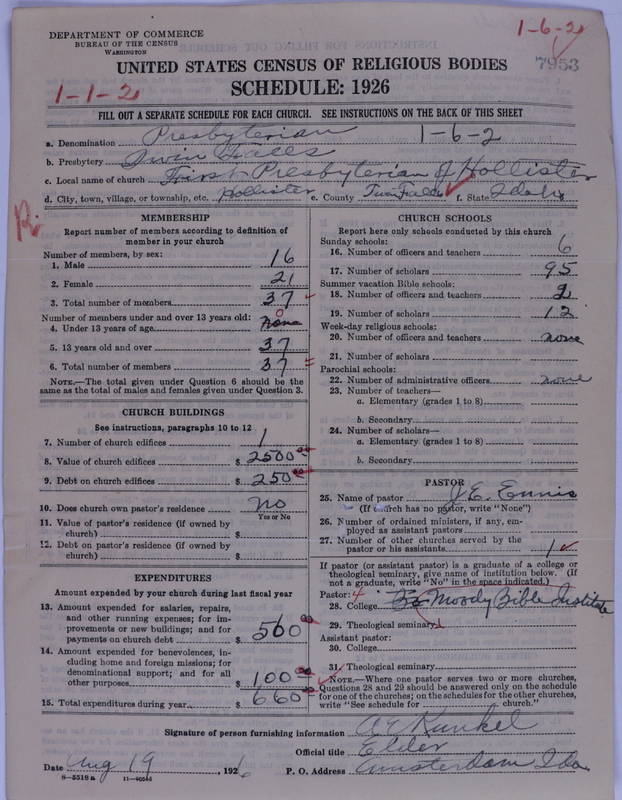 DEPARTMENT OF COMMERCE
BUREAU OF THE CENSUS
WASHINGTON
1-6-2
7953
UNITED STATES CENSUS OF RELIGIOUS BODIES
1-1-2
SCHEDULE: 1926
FILL OUT A SEPARATE SCHEDULE FOR EACH CHURCH. SEE INSTRUCTIONS ON THE BACK OF THIS SHEET
a. Denomination Presbyterian 1-6-2
b. Presbytery Twin Falls
c. Local name of church First Presbyterian of Hollister
d. City, town, village, or township, etc. Hollister e. County Twin Falls f. State Idaho
MEMBERSHIP
Report number of members according to definition of
member in your church
Number of members, by sex:
1. Male 16
2. Female 21
3. Total number of members 37
Number of members under and over 13 years old: 0
4. Under 13 years of age none
5. 13 years old and over 37
6. Total number of members 37
NOTE.—The total given under Question 6 should be
same as the total of males and females given under Question 3.
CHURCH BUILDINGS
See instructions, paragraphs 10 to 12
7. Number of church edifices 1
8. Value of church edifices $ 2500 00
9. Debt on church edifices $ 250 00
10. Does church own pastor's residence no
Yes or No
11. Value of pastor's residence (if owned by
church) $
12. Debt on pastor's residence (if owned by
church) $
EXPENDITURES
Amount expended by your church during last fiscal year
13. Amount expended for salaries, repairs,
and other running expenses; for im-
provements or new buildings; and for
payments on church debt $ 560 00
14. Amount expended for benevolences, in-
cluding home and foreign missions; for
denominational support; and for all
other purposes $ 100 00
15. Total expenditures during year $ 660 00
CHURCH SCHOOLS
Report here only schools conducted by this church
Sunday schools:
16. Number of officers and teachers 6
17. Number of scholars 95
Summer vacation Bible schools:
18. Number of officers and teachers 2
19. Number of scholars 12
Week-day religious schools:
20. Number of officers and teachers none
21. Number of scholars
Parochial schools:
22. Number of administrative officers none
23. Number of teachers—
a. Elementary (grades 1 to 8)
b. Secondary
24. Number of scholars—
a. Elementary (grades 1 to 8)
b. Secondary
PASTOR
25. Name of pastor J. E. Ennis
(If church has no pastor, write "None")
26. Number of ordained ministers, if any, em-
ployed as assistant pastors
27. Number of other churches served by the
pastor or his assistants 1
If pastor (or assistant pastor) is a graduate of a college or
theological seminary, give name of institution below. (If
not a graduate, write "No" in the space indicated.)
Pastor: 4
28. College Moody Bible Institute
29. Theological seminary
Assistant pastor:
30. College
31. Theological seminary
NOTE.—Where one pastor serves two or more churches,
Questions 28 and 29 should be answered only on the schedule
for one of the churches; on the schedules for the other churches,
write "See schedule for church."
Signature of person furnishing information A E Kunkel
Official title Elder
Date Aug 19, 1926 P. O. Address Amsterdam Ida.
8—5518a 11—90546